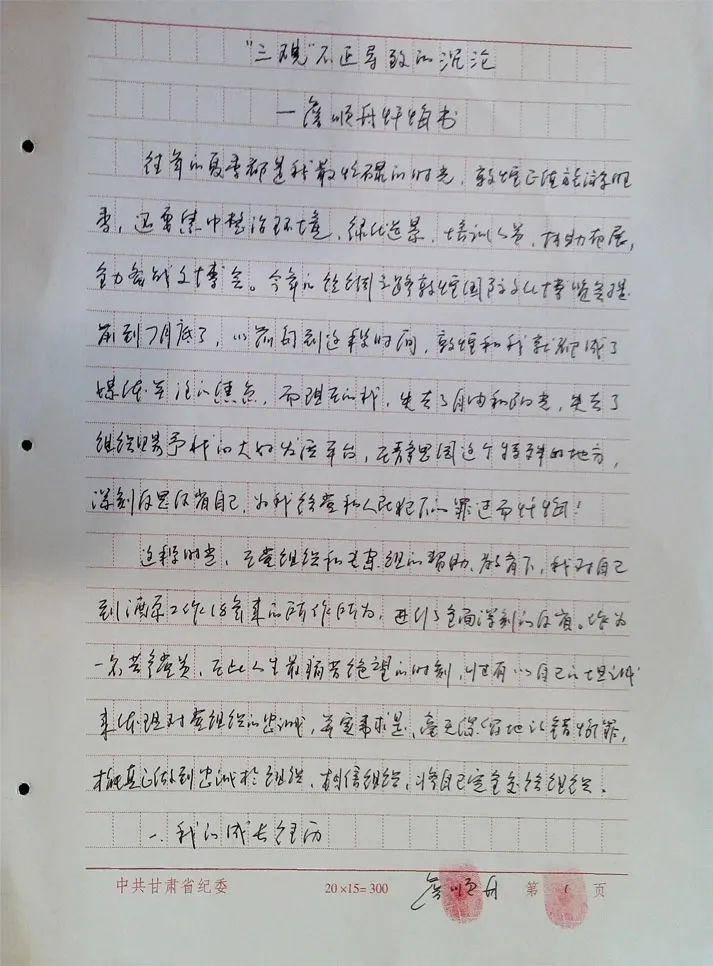 "三观"不正导致的沉沦
—詹顺舟忏悔书
往年的夏季都是我最忙碌的时光,敦煌正值旅游旺
季,还要集中整治环境,绿化造景,培训人员,布展,
全力备战文博会。今年的丝绸之路敦煌国际文化博览会提
前到7月底了,以前每到这段时间,敦煌和我就都成了
媒体关注的焦点,而现在的我,失去了自由和阳光,失去了
组织赐予我的大好发展平台,在静思园这个特殊的地方,
深刻反思反省自己,为我给党和人民犯下的罪过而忏悔!
这段时光,在党组织和专案组的帮助、教育下,我对自己
到酒泉工作18年来的所作所为,进行了全面深刻的反省。作为
一名共产党员,在此人生最痛苦绝望的时刻,只有以自己的坦诚
来体现对党组织的忠诚,实事求是、毫无保留地认错悔罪,
才能真正做到忠诚于组织、相信组织,将自己完全交给组织。
一、我的成长经历
中共甘肃省纪委 20×15=300 詹顺舟 第1页